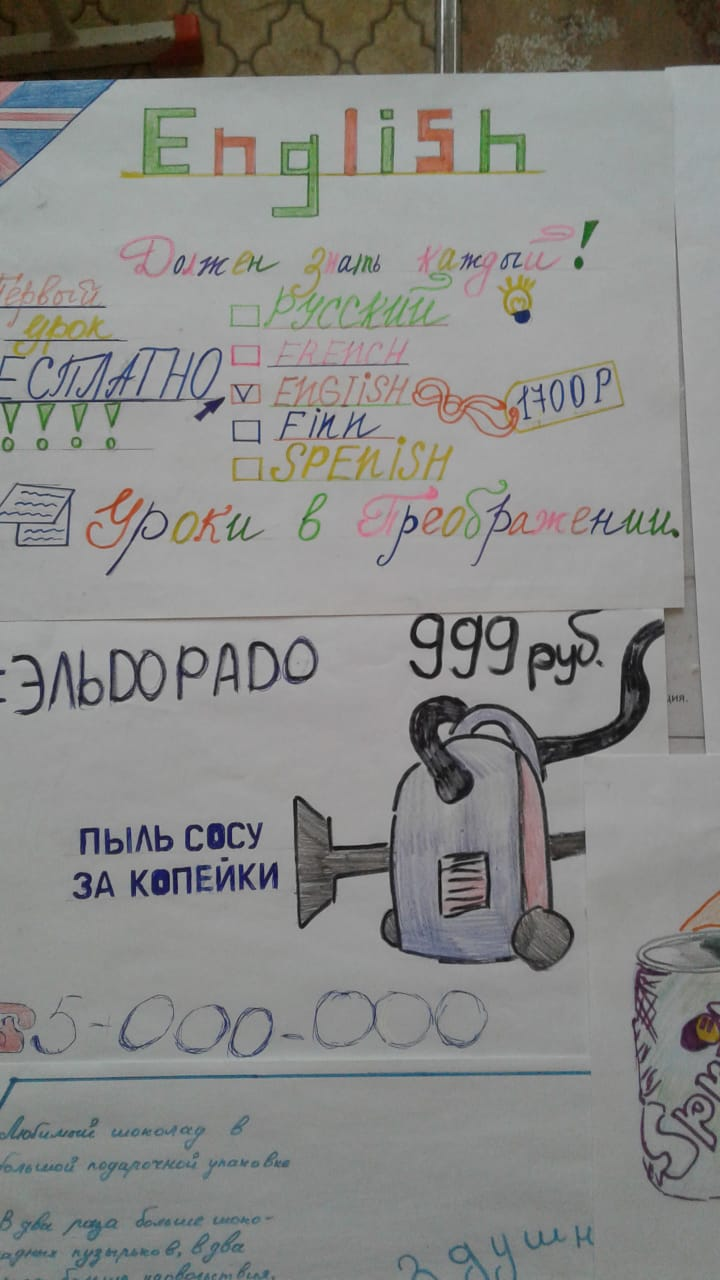 English
Должен знать каждый!
Первый
урок
ЕСПЛАТНО
!!!!
РУССКИЙ
FRENCH
ENGlISH
FINN
SPENISH
1700 Р
Уроки в Преображении.
ЭЛЬDОРАDО
999 руб.
ция.
ПЫЛЬ СОСУ
ЗА КОПЕЙКИ
5-000-000
Любимый шоколад в
большой подарочной упаковке
В два раза больше шоко-
адных пузырьков, в два
больше
Здушн